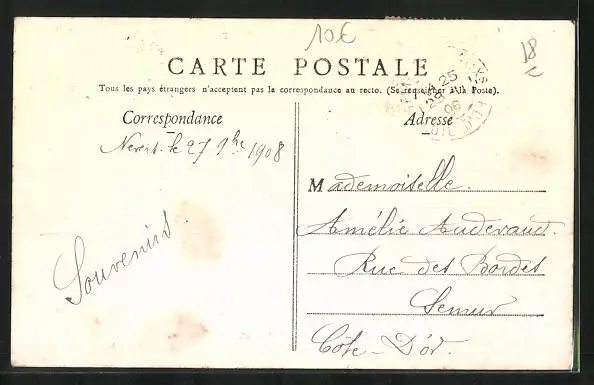 10€
18
CARTE POSTALE
Tous les pays étrangers n'acceptent pas la correspondance au recto. (Se renseigner à la Poste).
Correspondance
Adresse
25
08
COTE D'OR
Nevers. le 27 9bre 1908
Souvenirs
Mademoiselle.
Amélie Auderaud.
Rue des Bordes
Semur
Côte-D'or.